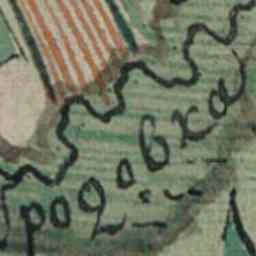 родовка